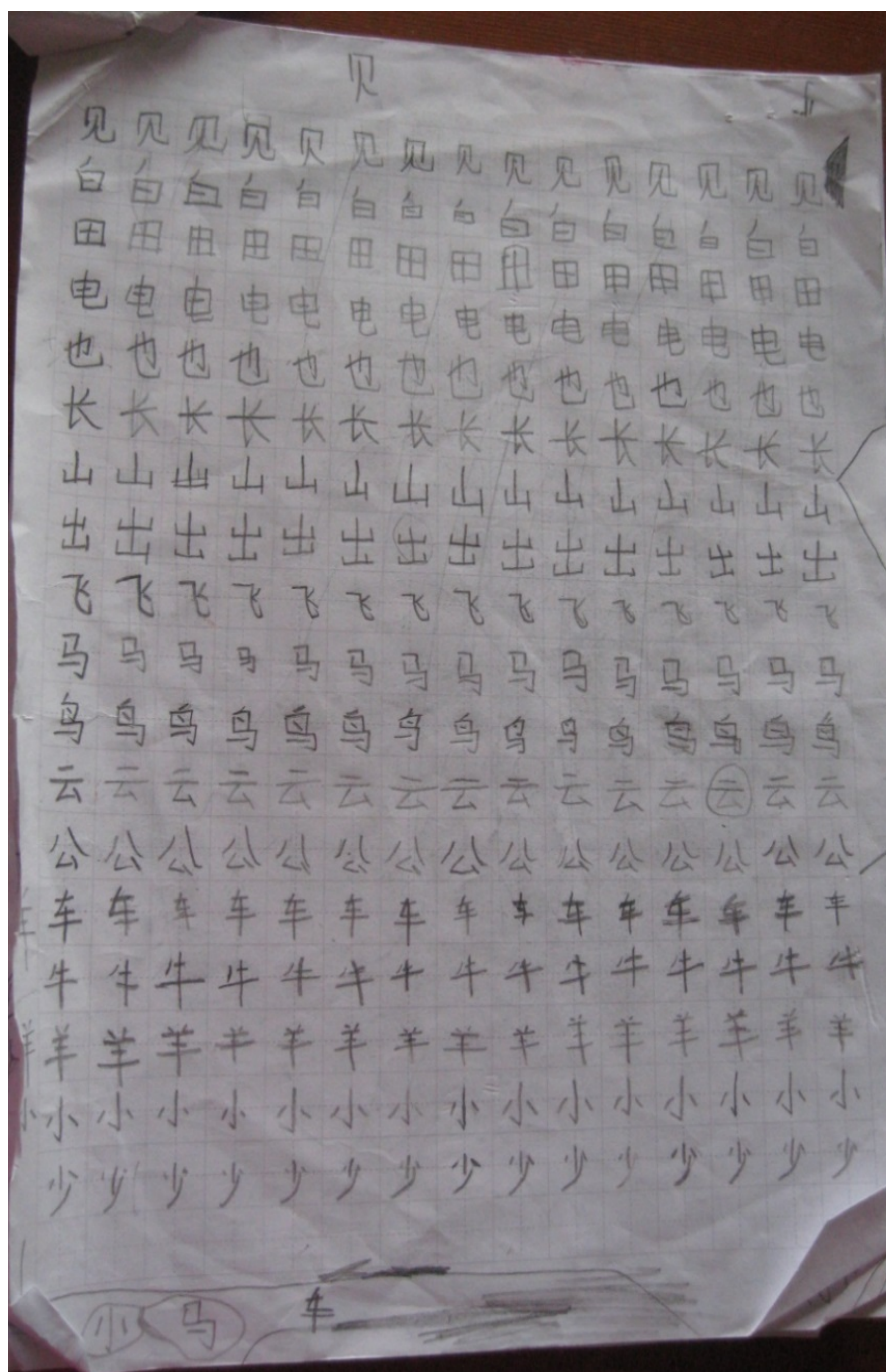 见
见 见 见 见 见 见 见 见 见 见 见 见 见 见 见
白 白 白 白 白 白 白 白 白 白 白 白 白 白 白
田 田 田 田 田 田 田 田 田 田 田 田 田 田 田
电 电 电 电 电 电 电 电 电 电 电 电 电 电 电
也 也 也 也 也 也 也 也 也 也 也 也 也 也 也
长 长 长 长 长 长 长 长 长 长 长 长 长 长 长
山 山 山 山 山 山 山 山 山 山 山 山 山 山 山
出 出 出 出 出 出 出 出 出 出 出 出 出 出 出
飞 飞 飞 飞 飞 飞 飞 飞 飞 飞 飞 飞 飞 飞 飞
马 马 马 马 马 马 马 马 马 马 马 马 马 马 马
鸟 鸟 鸟 鸟 鸟 鸟 鸟 鸟 鸟 鸟 鸟 鸟 鸟 鸟 鸟
云 云 云 云 云 云 云 云 云 云 云 云 云 云 云
公 公 公 公 公 公 公 公 公 公 公 公 公 公 公
车 车 车 车 车 车 车 车 车 车 车 车 车 车 车
牛 牛 牛 牛 牛 牛 牛 牛 牛 牛 牛 牛 牛 牛 牛
羊 羊 羊 羊 羊 羊 羊 羊 羊 羊 羊 羊 羊 羊 羊
小 小 小 小 小 小 小 小 小 小 小 小 小 小 小
少 少 少 少 少 少 少 少 少 少 少 少 少 少 少
小 马 车